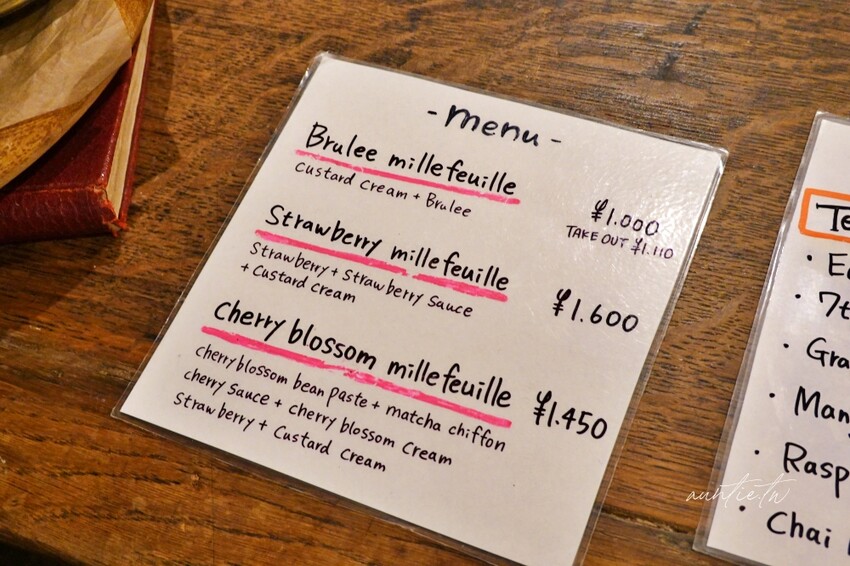 - menu -
Brulee millefeuille
Custard Cream + Brulee
¥1.000
TAKE OUT ¥1.110
Strawberry millefeuille
Strawberry + Strawberry Sauce
+ Custard Cream
¥1.600
Cherry blossom millefeuille
cherry blossom bean paste + matcha chiffon
cherry Sauce + cherry blossom Cream
Strawberry + Custard Cream
¥1.450
· 7t
· Gra
· Man
· Rasp
· Chai
auntie.tw